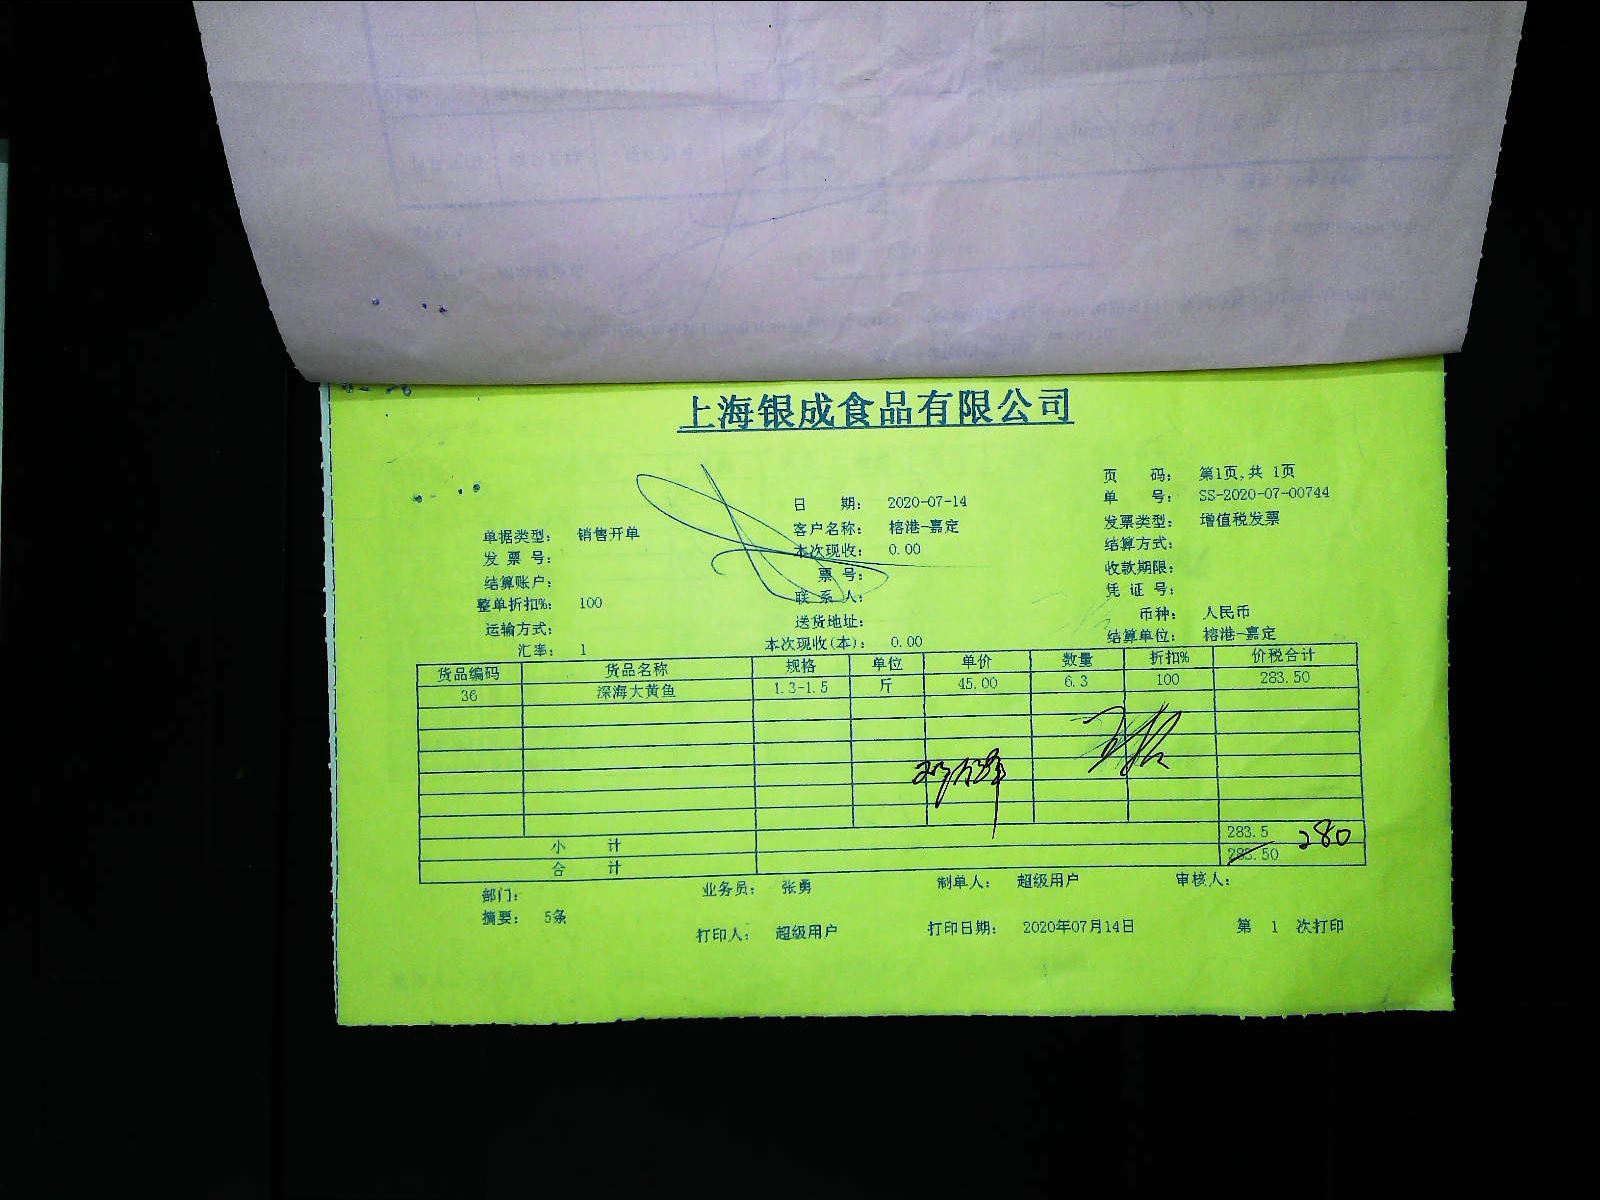 上海银成食品有限公司
页 码: 第1页,共 1页
日 期: 2020-07-14 单 号: SS-2020-07-00744
单据类型: 销售开单 客户名称: 榕港-嘉定 发票类型: 增值税发票
发 票 号: 本次现收: 0.00 结算方式:
结算账户: 票 号: 收款期限:
整单折扣%: 100 联 系 人: 凭 证 号:
运输方式: 送货地址: 币种: 人民币
汇率: 1 本次现收(本): 0.00 结算单位: 榕港-嘉定
货品编码 货品名称 规格 单位 单价 数量 折扣% 价税合计
36 深海大黄鱼 1.3-1.5 斤 45.00 6.3 100 283.50
小 计 283.5 280
合 计 283.50
部门: 业务员: 张勇 制单人: 超级用户 审核人:
摘要: 5条
打印人: 超级用户 打印日期: 2020年07月14日 第 1 次打印